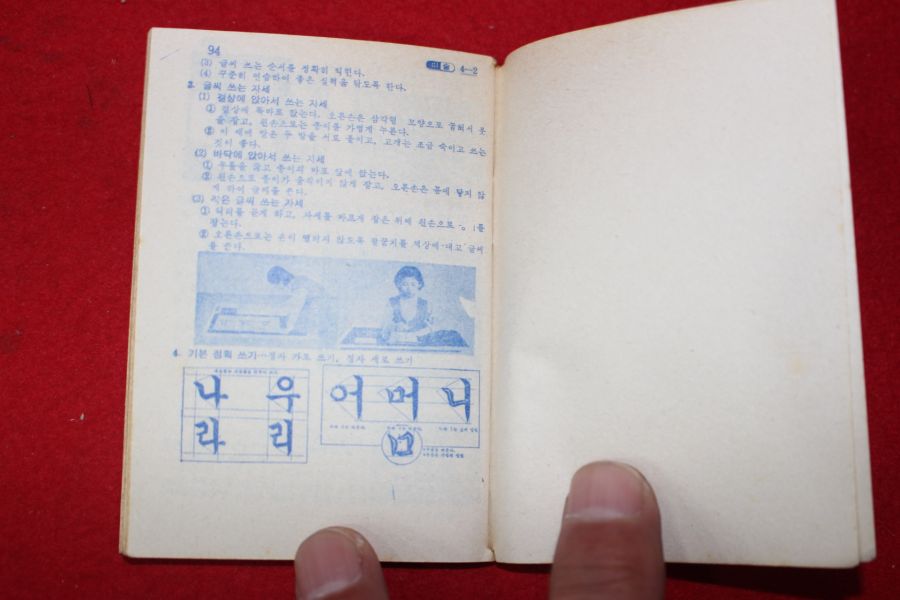 94
미술 4-2
(3) 글씨 쓰는 순서를 정확히 익힌다.
(4) 꾸준히 연습하여 좋은 실력을 닦도록 한다.
3. 글씨 쓰는 자세
(1) 걸상에 앉아서 쓰는 자세
① 걸상에 똑바로 앉는다. 오른손은 삼각형 모양으로 굽혀서 붓
을 잡고, 왼손으로는 종이를 가볍게 누른다.
② 이 때에 양은 두 발을 서로 붙이고, 고개는 조금 숙이고 쓰는
것이 좋다.
(2) 바닥에 앉아서 쓰는 자세
① 무릎을 꿇고 종이의 바로 앞에 앉는다.
② 왼손으로 종이가 움직이지 않게 잡고, 오른손은 몸에 닿지 않
게 하여 글씨를 쓴다.
(3) 작은 글씨 쓰는 자세
① 허리를 곧게 하고, 자세를 바르게 잡은 뒤에 왼손으로 를
잡는다.
② 오른손으로는 손이 떨리지 않도록 팔꿈치를 책상에 대고 글씨
를 쓴다.
4. 기본 점획 쓰기…정자 가로 쓰기, 정자 세로 쓰기
나 우
라 리
어 머 니
ㅁ